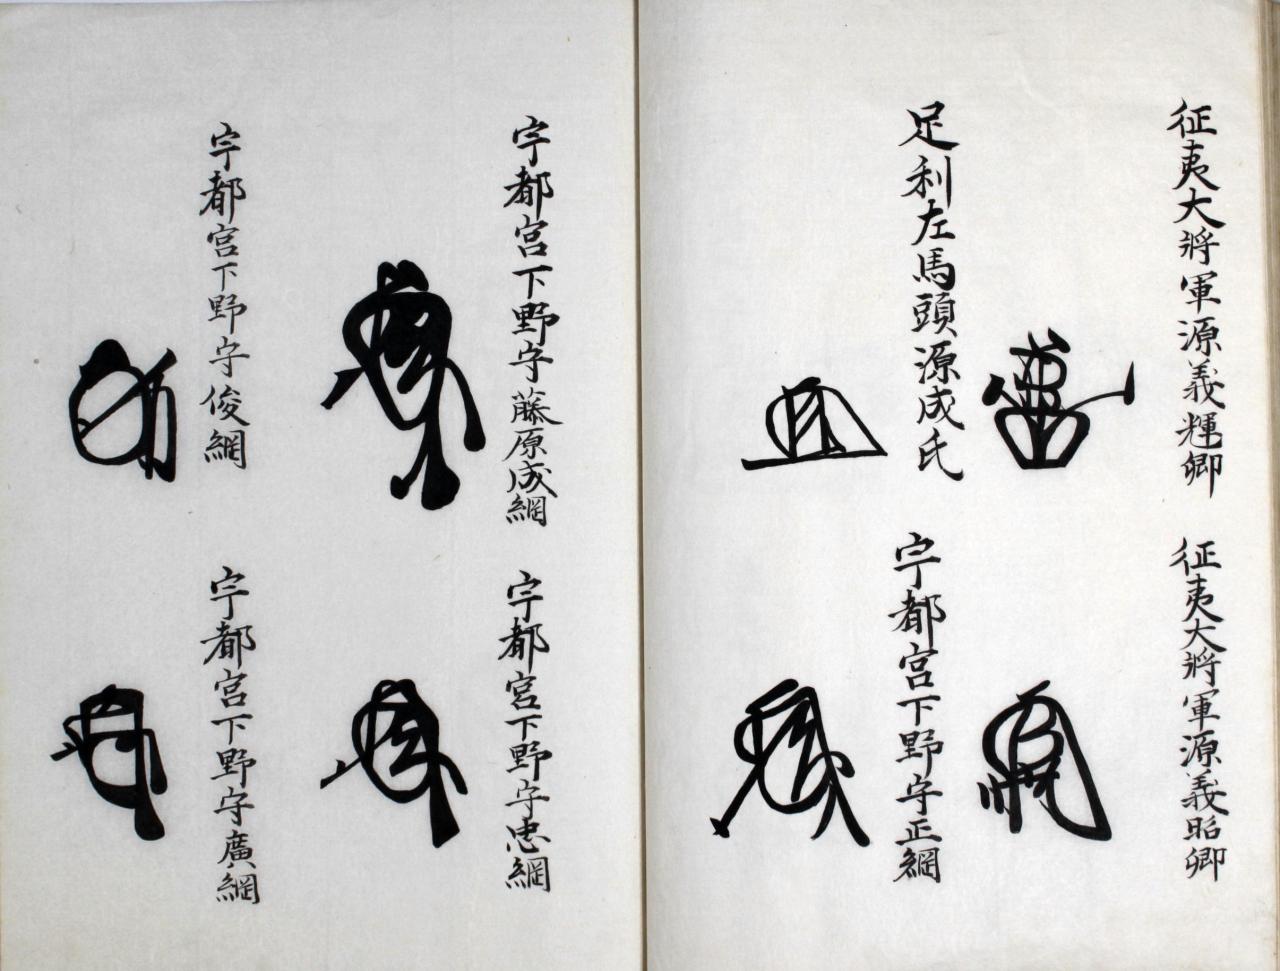 征夷大將軍源義輝卿
征夷大將軍源義昭卿
足利左馬頭源成氏
宇都宮下野守正綱
宇都宮下野守藤原成綱
宇都宮下野守忠綱
宇都宮下野守俊綱
宇都宮下野守廣綱